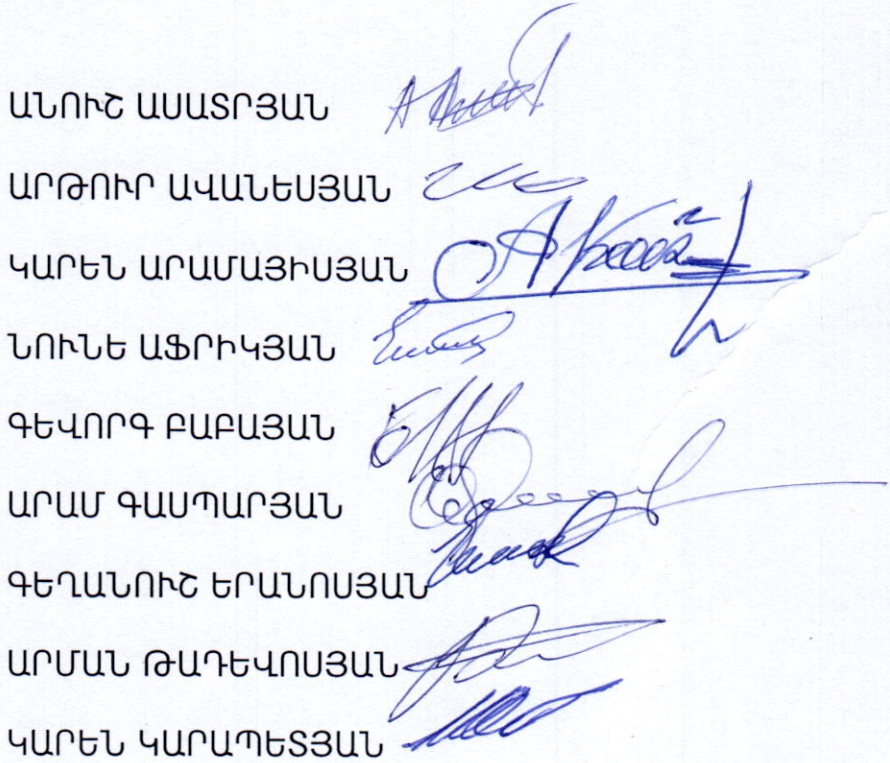 ԱՆՈՒՇ ԱՍԱՏՐՅԱՆ
ԱՐԹՈՒՐ ԱՎԱՆԵՍՅԱՆ
ԿԱՐԵՆ ԱՐԱՄԱՅԻՍՅԱՆ
ՆՈՒՆԵ ԱՖՐԻԿՅԱՆ
ԳԵՎՈՐԳ ԲԱԲԱՅԱՆ
ԱՐԱՄ ԳԱՍՊԱՐՅԱՆ
ԳԵՂԱՆՈՒՇ ԵՐԱՆՈՍՅԱՆ
ԱՐՄԱՆ ԹԱԴԵՎՈՍՅԱՆ
ԿԱՐԵՆ ԿԱՐԱՊԵՏՅԱՆ